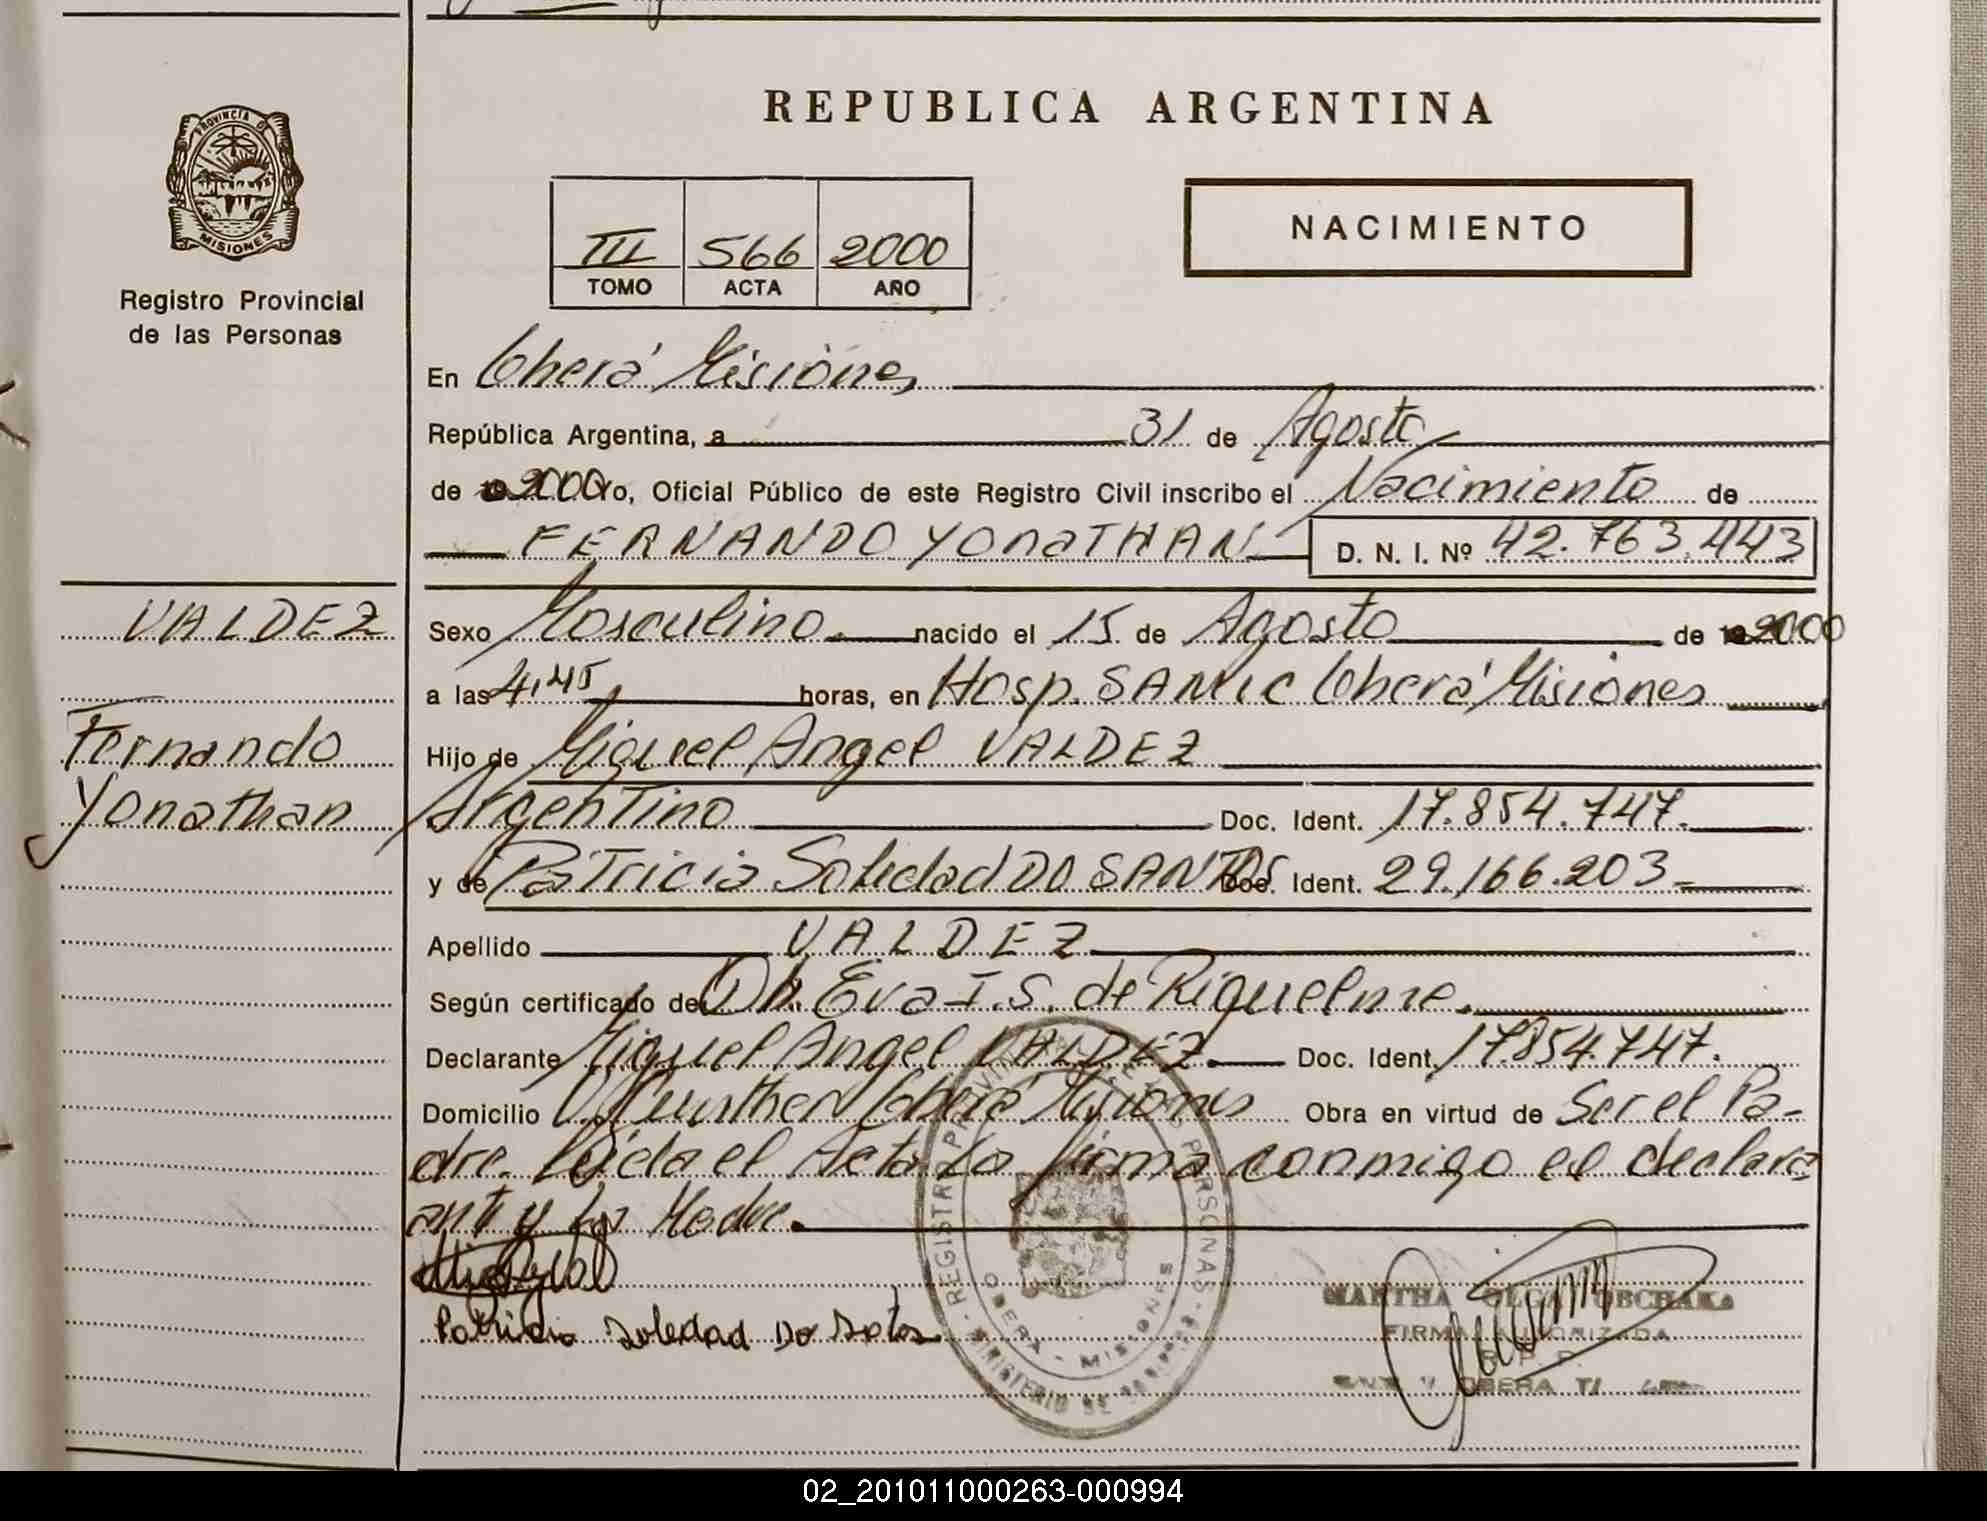 REPUBLICA ARGENTINA
PROVINCIA DE
MISIONES
Registro Provincial
de las Personas
III 566 2000
TOMO ACTA AÑO
NACIMIENTO
En Oberá Misiones
República Argentina, a 31 de Agosto
de 2000 Yo, Oficial Público de este Registro Civil inscribo el Nacimiento de
FERNANDO YONATHAN D. N. I. Nº 42.763.443
VALDEZ
Fernando
Yonathan
Sexo Masculino nacido el 15 de Agosto de 2000
a las 4,45 horas, en Hosp. SAMIC Oberá Misiones
Hijo de Miguel Angel VALDEZ
Argentino Doc. Ident. 17.854.747.
y de Patricia Soledad DO SANTOS Doc. Ident. 29.166.203
Apellido VALDEZ
Según certificado de Ob. Eva I.S. de Riquelme.
Declarante Miguel Angel VALDEZ. Doc. Ident. 17.854.747.
Domicilio Oberá Misiones Obra en virtud de Ser el Pa-
dre. Leída el Acta La firma conmigo el declara
ante y la Madre.
Patricia Soledad Do Satos
REGISTRO PROVINCIAL DE LAS PERSONAS
OBERA - MISIONES
MINISTERIO DE
MARTHA OLGA OBCHAKA
FIRMA AUTORIZADA
R. P. P.
OBERA
02_201011000263-000994